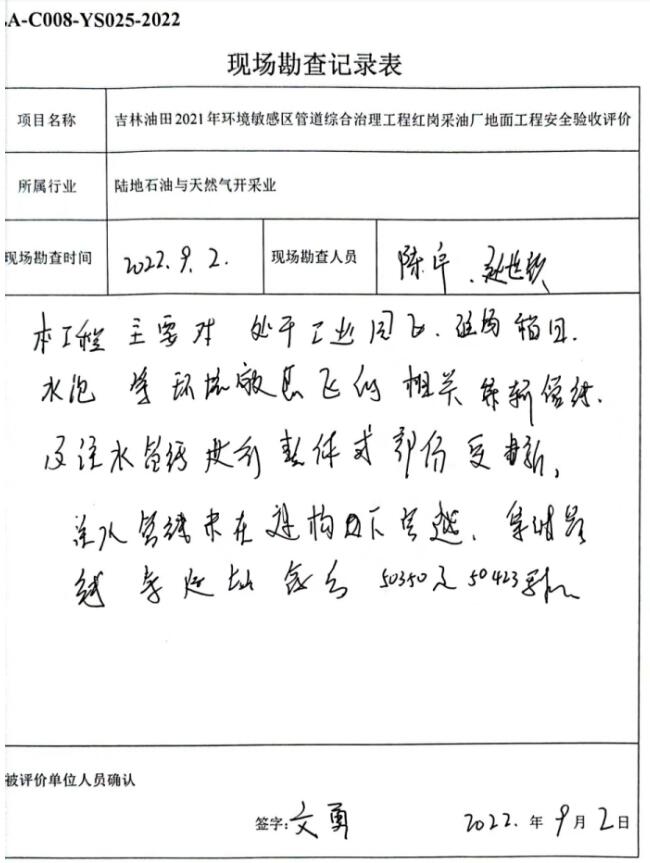 A-C008-YS025-2022
现场勘查记录表
项目名称 吉林油田2021年环境敏感区管道综合治理工程红岗采油厂地面工程安全验收评价
所属行业 陆地石油与天然气开采业
现场勘查时间 2022.9.2. 现场勘查人员 陈卓
本工程 主要对 处于工业园区、
水泡 等环境敏感区的 相关 管线.
及注水管线进行整体或部份更新,
管线未在建构下穿越、集油
线 等 50350及50423
被评价单位人员确认
签字:文勇 2022.年9月2日